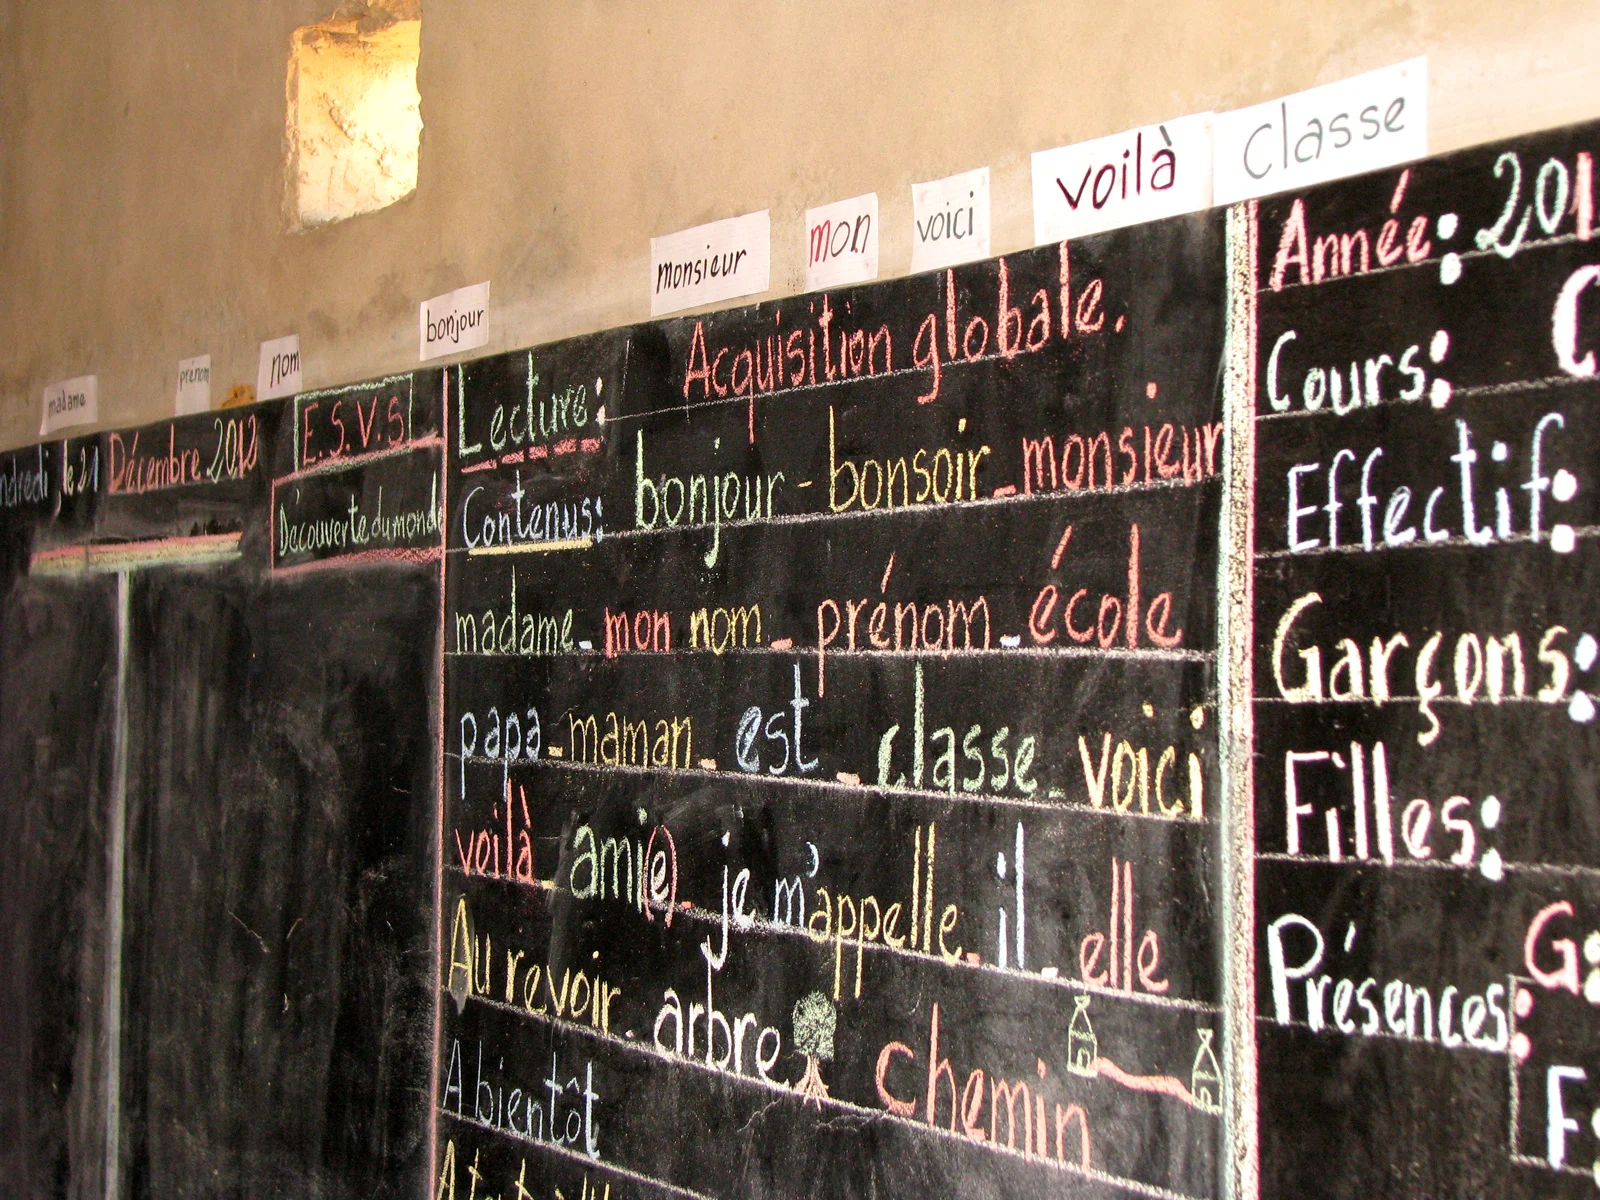 madame
prénom
nom
bonjour
monsieur
mon
voici
voilà
Classe
le 21 Décembre 2012
E.S.V.S
Découverte du monde
Lecture: Acquisition globale.
Contenus: bonjour - bonsoir - monsieur
madame - mon nom - prénom - école
papa - maman - est - classe - voici
voilà - ami(e) - je m'appelle - il - elle
Au revoir - arbre chemin
A bientôt
Année: 201
Cours: C
Effectif:
Garçons:
Filles:
Présences: G:
F: